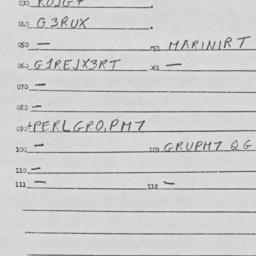 030 KUJG+
040 G3RUX
050 — 052 MARINIRT
060 G1REJX3RT 062 —
070 —
080 —
090 +PERLGRO.PM7
100 — 109 GRUPM7 QG
110 —
111 — 112 —